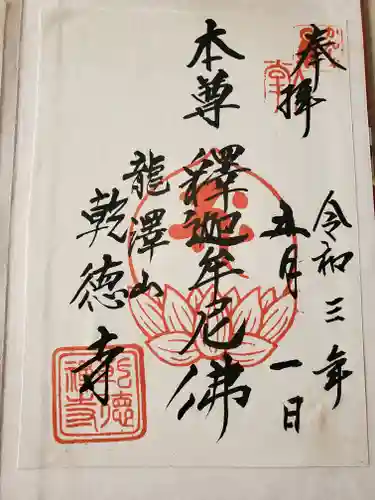 奉拝
令和三年
五月一日
本尊 釋迦牟尼佛
龍澤山
乾德寺